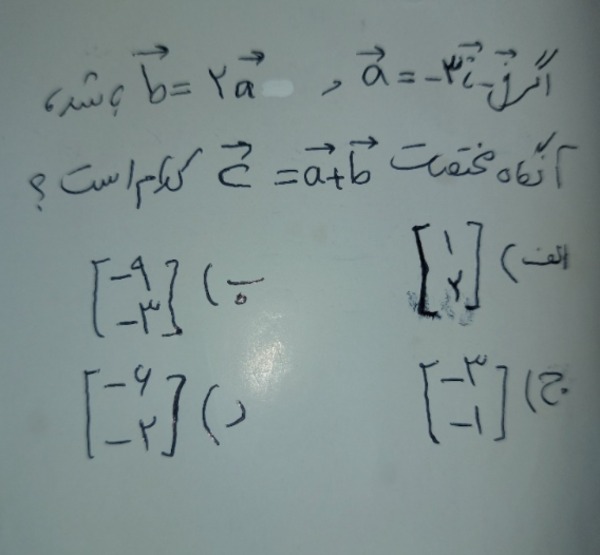 اگر a⃗ = -۳i⃗ - j⃗ و b⃗ = ۲a⃗ باشد،
آنگاه مختصات c⃗ = a⃗+b⃗ کدام است ؟
الف) [۱ ۲] ب) [-۹ -۳]
ج) [-۳ -۱] د) [-۶ -۲]